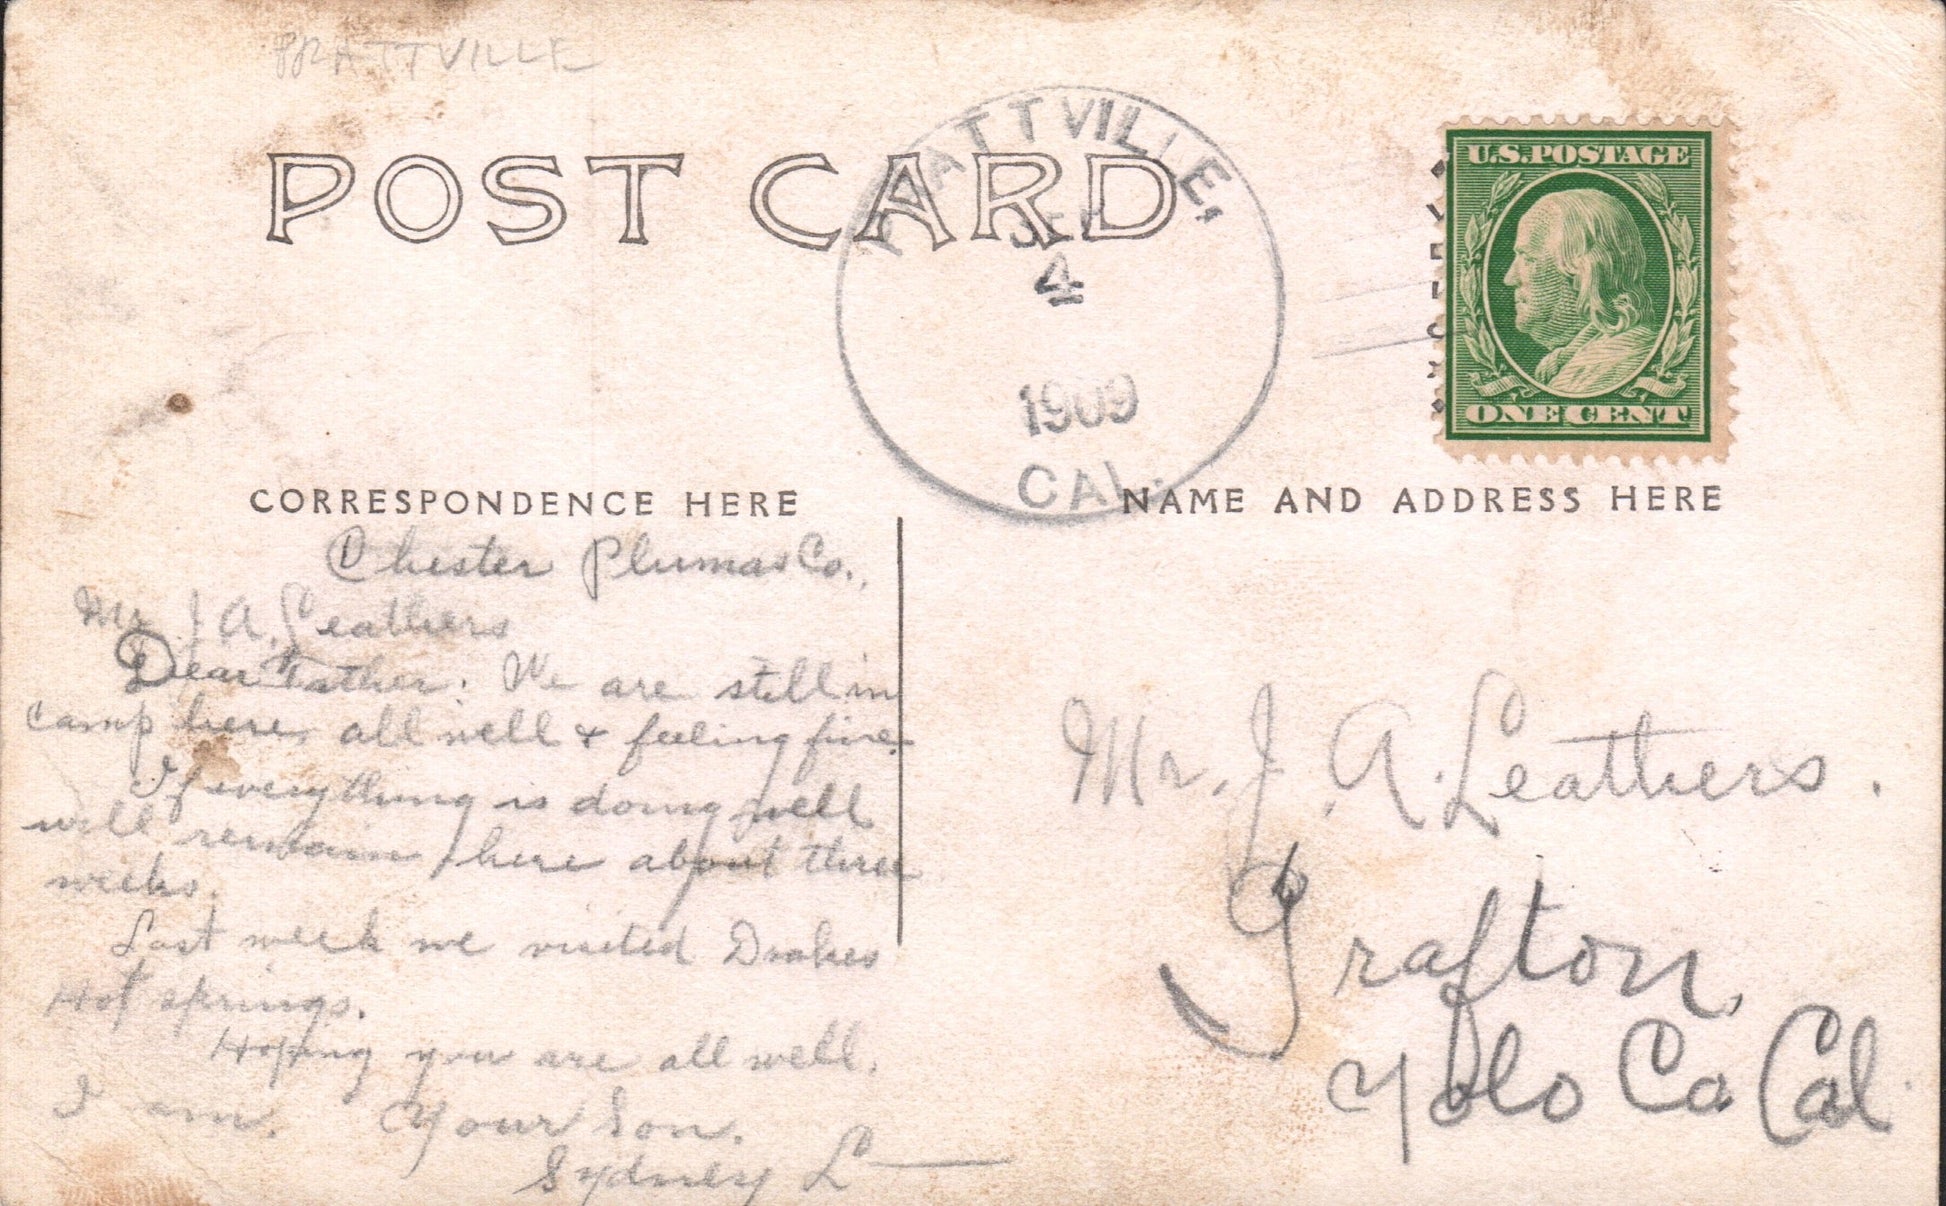 PRATTVILLE
POST CARD
PRATTVILLE,
SEP
4
1909
CAL.
U.S. POSTAGE
ONE CENT
CORRESPONDENCE HERE
NAME AND ADDRESS HERE
Chester Plumas Co.,
Mr. J A. Leathers
Dear Father: We are still in
camp here, all well & feeling fine.
If everything is doing well
will remain here about three
weeks.
Last week we visited Drakes
Hot springs.
Hoping you are all well.
I am. Your Son.
Sydney L
Mr. J. A. Leathers.
Grafton,
Yolo Co Cal.